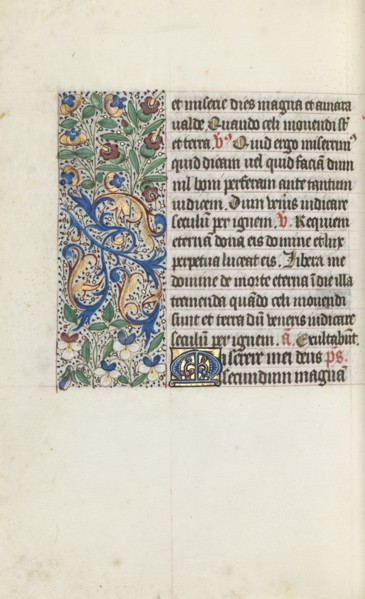 et miserie dies magna et amara
valde. Quando celi movendi st̄
et terra. v̄ Quid ergo miserrim᷒
quid dicam vel quid faciā dum
nil boni perferam ante tantum
iudicem. Dum veni᷒s iudicare
seculū per ignem. v. Requiem
eternā dona eis domine et lux
perpetua luceat eis. Libera me
domine de morte eterna ī die illa
tremenda quādo celi movendi
sunt et terra Dū veneris iudicare
seculū per ignem. a. Exultabūt.
Miserere mei deus ps.
secundum magnā